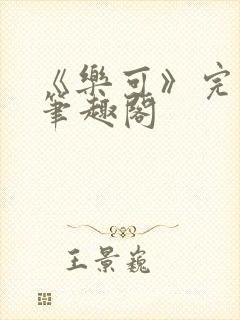 《樂可》完
筆趣閣
王景巍